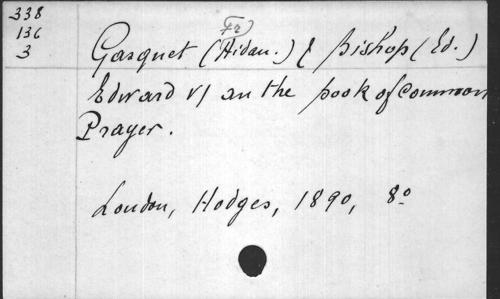 338
136
3
Fr)
Gasquet (Aidan.) & Bishop (Ed.)
Edward VI an the book of Common
Prayer.
London, Hodges, 1890, 8º